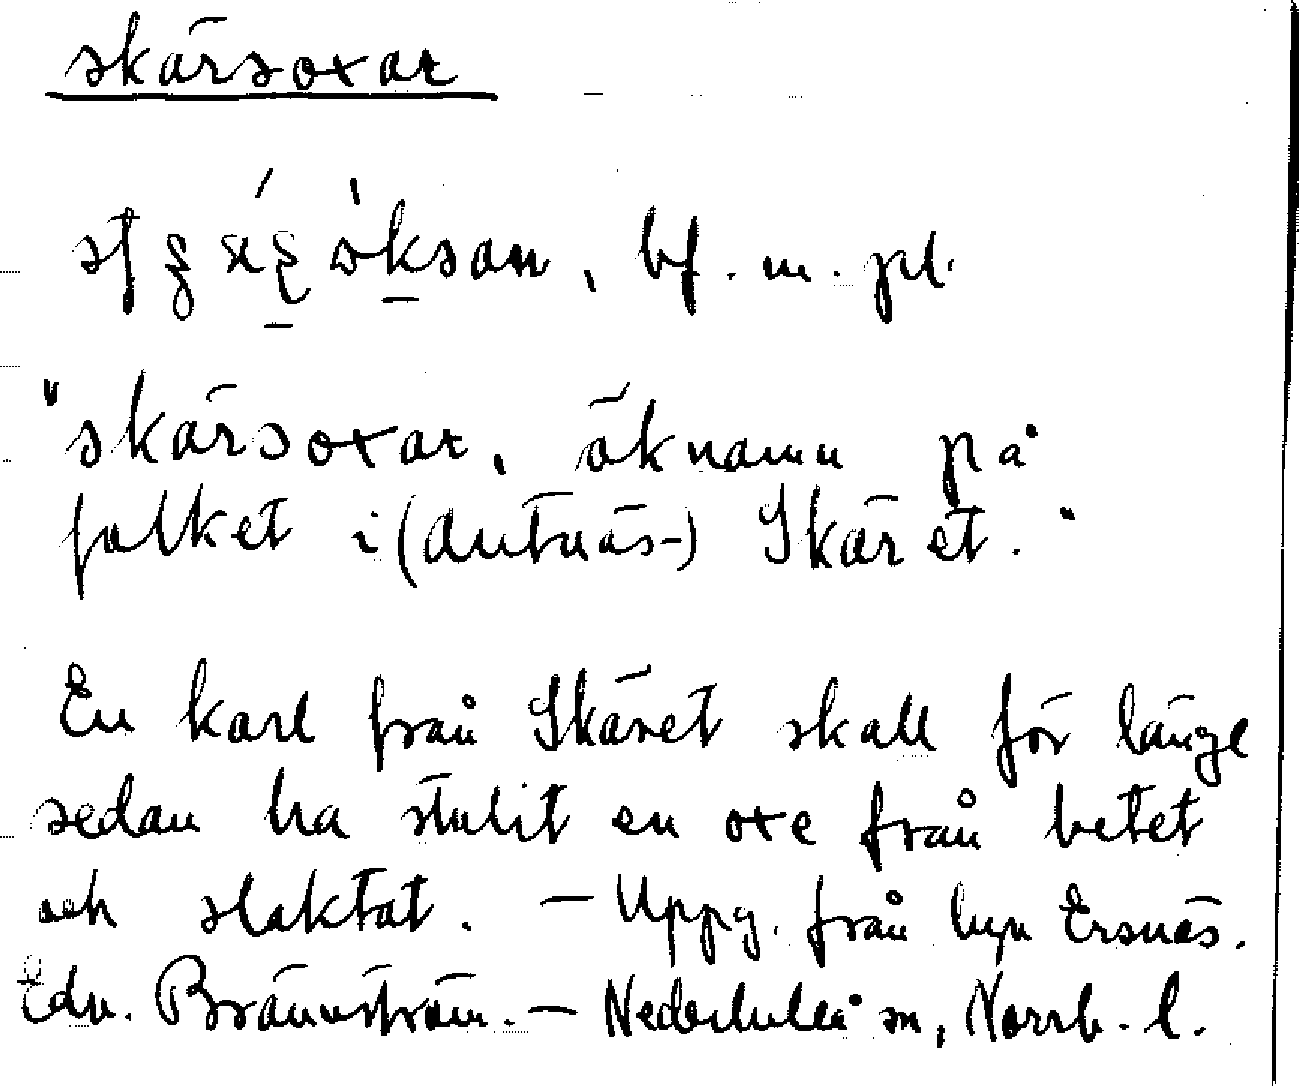 skärsoxar
bf. m. pl.
"skärsoxar, öknamn på
folket i (Antnäs-) Skäret."
En karl från Skäret skall för länge
sedan ha stulit en oxe från betet
och slaktat. – Uppg. från byn Ersnäs.
Edv. Brännström. – Nederluleå sn, Norrb. l.